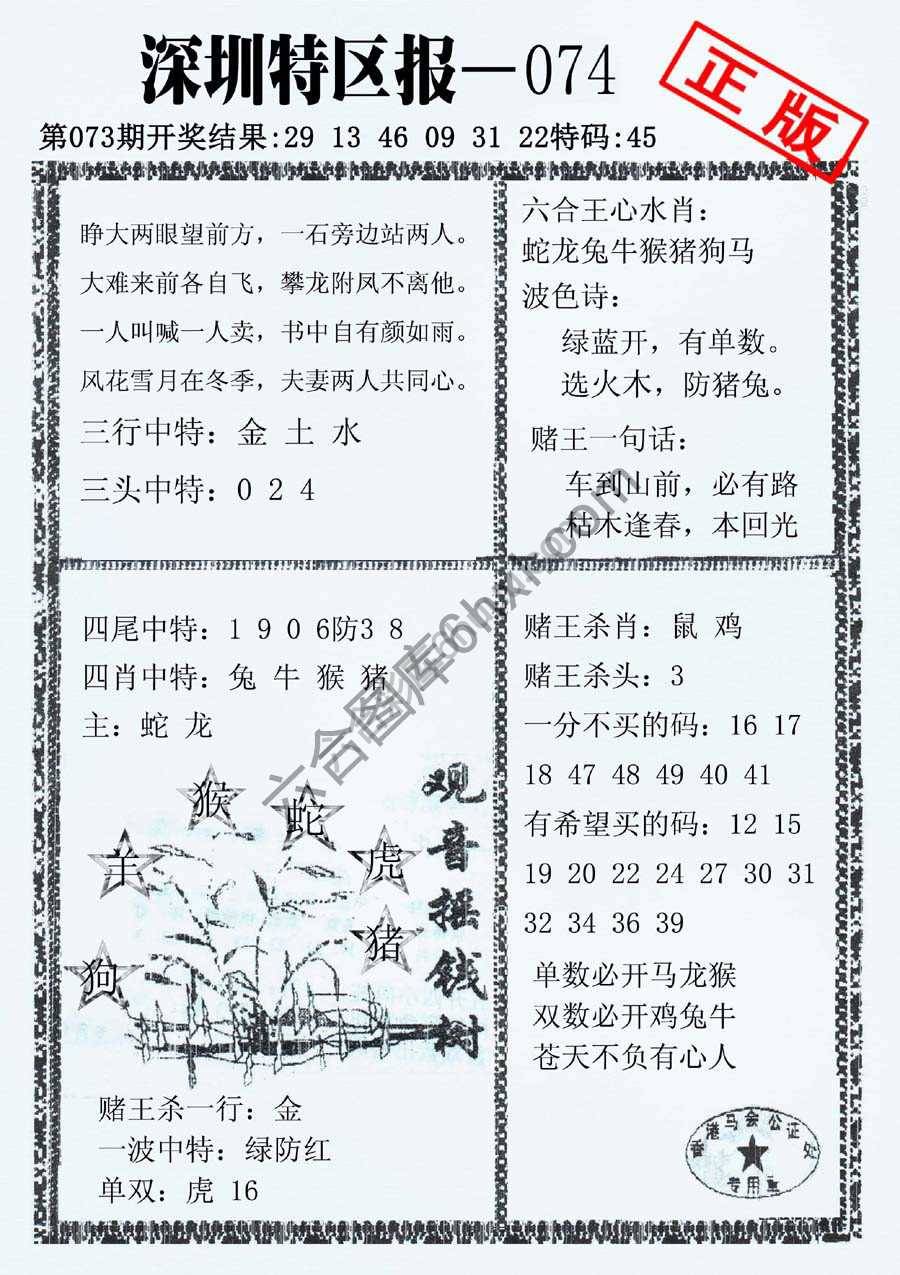 深圳特区报—074
正版
第073期开奖结果:29 13 46 09 31 22特码:45
睁大两眼望前方，一石旁边站两人。
大难来前各自飞，攀龙附凤不离他。
一人叫喊一人卖，书中自有颜如雨。
风花雪月在冬季，夫妻两人共同心。
三行中特：金 土 水
三头中特：0 2 4
六合王心水肖：
蛇龙兔牛猴猪狗马
波色诗：
绿蓝开，有单数。
选火木，防猪兔。
赌王一句话：
车到山前，必有路
枯木逢春，本回光
四尾中特：1 9 0 6防3 8
四肖中特：兔 牛 猴 猪
主：蛇 龙
猴
蛇
羊
虎
猪
狗
观音摇钱树
赌王杀一行：金
一波中特：绿防红
单双：虎 16
赌王杀肖：鼠 鸡
赌王杀头：3
一分不买的码：16 17
18 47 48 49 40 41
有希望买的码：12 15
19 20 22 24 27 30 31
32 34 36 39
单数必开马龙猴
双数必开鸡兔牛
苍天不负有心人
香港马会公证处
专用章
六合图库6hxh.com